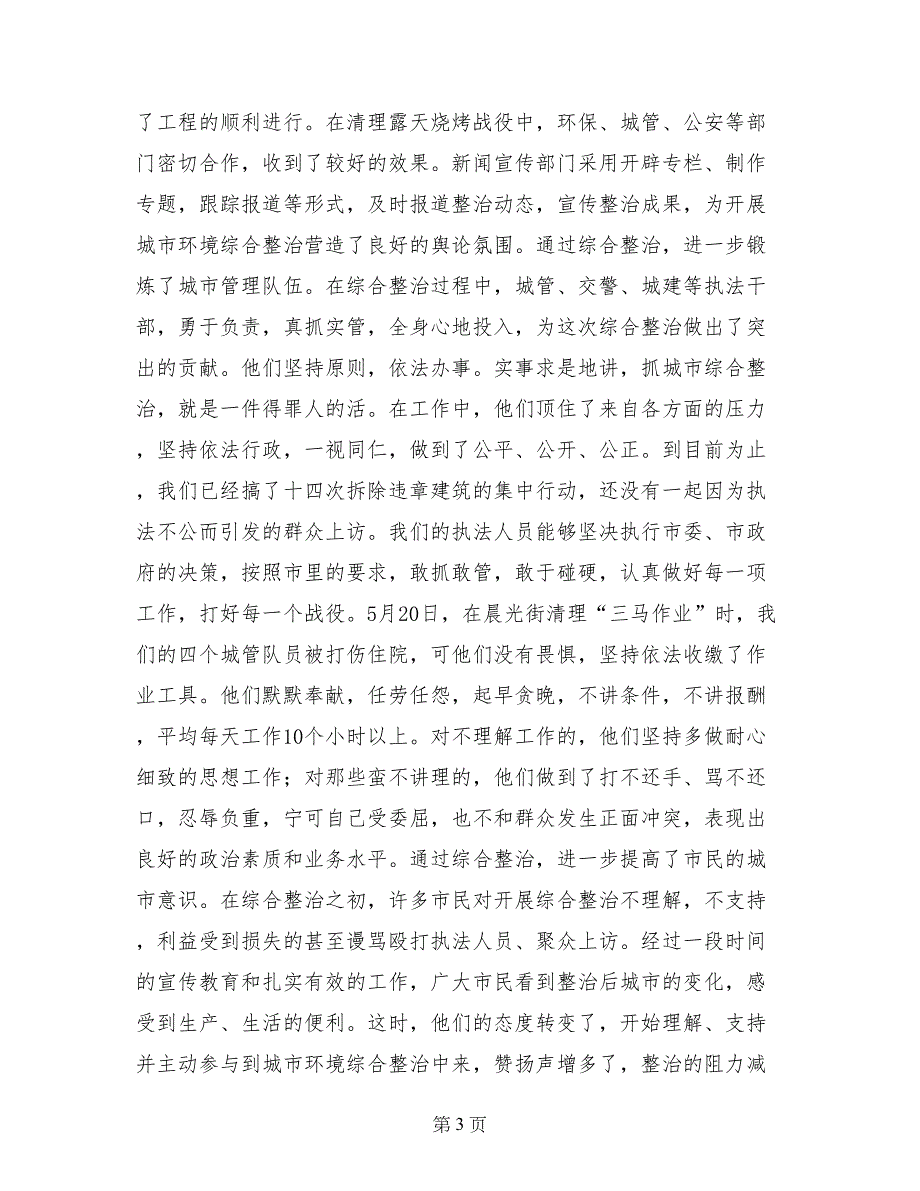 了工程的顺利进行。在清理露天烧烤战役中，环保、城管、公安等部
门密切合作，收到了较好的效果。新闻宣传部门采用开辟专栏、制作
专题，跟踪报道等形式，及时报道整治动态，宣传整治成果，为开展
城市环境综合整治营造了良好的舆论氛围。通过综合整治，进一步锻
炼了城市管理队伍。在综合整治过程中，城管、交警、城建等执法干
部，勇于负责，真抓实管，全身心地投入，为这次综合整治做出了突
出的贡献。他们坚持原则，依法办事。实事求是地讲，抓城市综合整
治，就是一件得罪人的活。在工作中，他们顶住了来自各方面的压力
，坚持依法行政，一视同仁，做到了公平、公开、公正。到目前为止
，我们已经搞了十四次拆除违章建筑的集中行动，还没有一起因为执
法不公而引发的群众上访。我们的执法人员能够坚决执行市委、市政
府的决策，按照市里的要求，敢抓敢管，敢于碰硬，认真做好每一项
工作，打好每一个战役。5月20日，在晨光街清理“三马作业”时，我
们的四个城管队员被打伤住院，可他们没有畏惧，坚持依法收缴了作
业工具。他们默默奉献，任劳任怨，起早贪晚，不讲条件，不讲报酬
，平均每天工作10个小时以上。对不理解工作的，他们坚持多做耐心
细致的思想工作；对那些蛮不讲理的，他们做到了打不还手、骂不还
口，忍辱负重，宁可自己受委屈，也不和群众发生正面冲突，表现出
良好的政治素质和业务水平。通过综合整治，进一步提高了市民的城
市意识。在综合整治之初，许多市民对开展综合整治不理解，不支持
，利益受到损失的甚至谩骂殴打执法人员、聚众上访。经过一段时间
的宣传教育和扎实有效的工作，广大市民看到整治后城市的变化，感
受到生产、生活的便利。这时，他们的态度转变了，开始理解、支持
并主动参与到城市环境综合整治中来，赞扬声增多了，整治的阻力减
第 3 页